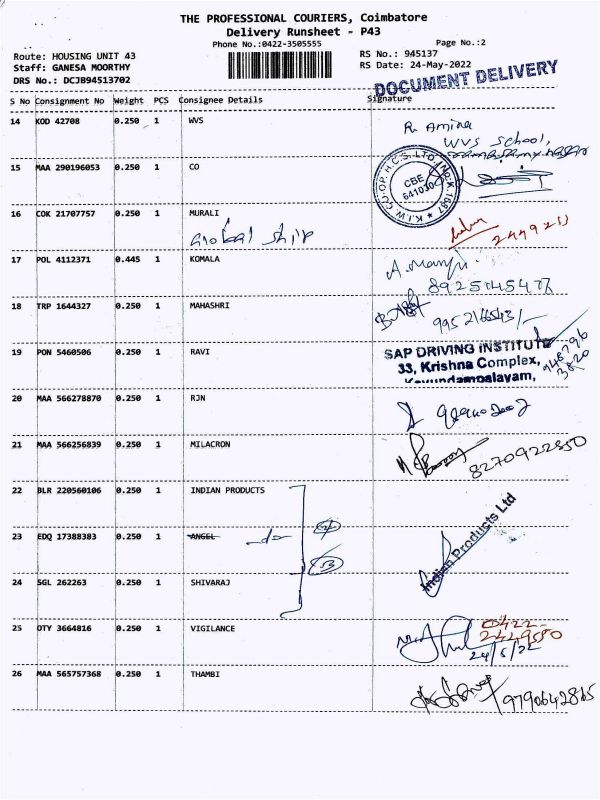 THE PROFESSIONAL COURIERS, Coimbatore
Delivery Runsheet - P43
Phone No.:0422-3505555
Page No.:2
Route: HOUSING UNIT 43
RS No.: 945137
Staff: GANESA MOORTHY
RS Date: 24-May-2022
DRS No.: DCJB94513702
DOCUMENT DELIVERY
S No Consignment No Weight PCS Consignee Details Signature
14 KOD 42708 0.250 1 WVS
R. Amina
WVS School,
15 MAA 290196053 0.250 1 CO
K.I.W CO-OP. H.C.S. LTD.
CBE
641030
16 COK 21707757 0.250 1 MURALI
Global Ship
17 POL 4112371 0.445 1 KOMALA
18 TRP 1644327 0.250 1 MAHASHRI
19 PON 5460506 0.250 1 RAVI
SAP DRIVING INSTITUTE
33, Krishna Complex,
Kavundampalayam,
20 MAA 566278870 0.250 1 RJN
21 MAA 566256839 0.250 1 MILACRON
8270922850
22 BLR 220560106 0.250 1 INDIAN PRODUCTS
23 EDQ 17388383 0.250 1 ANGEL
Indian Products Ltd
24 SGL 262263 0.250 1 SHIVARAJ
25 OTY 3664816 0.250 1 VIGILANCE
0422-
2449550
24/5/22
26 MAA 565757368 0.250 1 THAMBI
9790642865